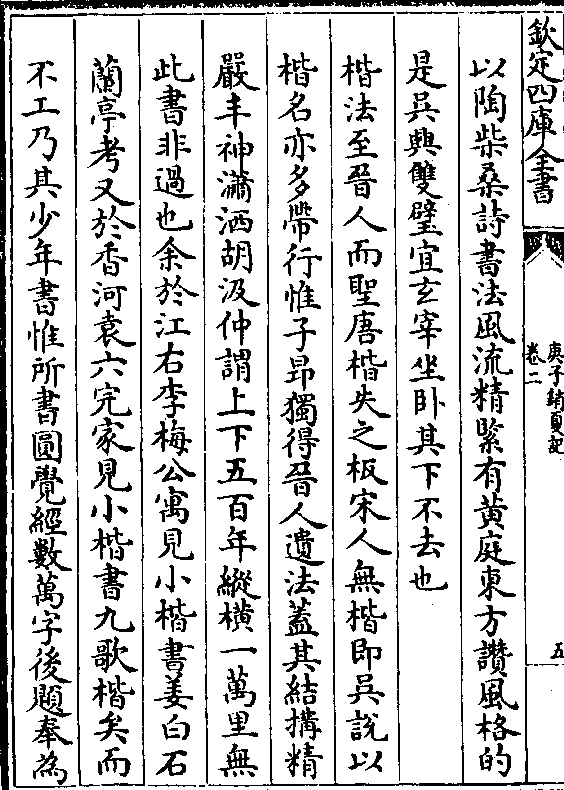 欽定四庫全書
庚子銷夏記
卷二
五
以陶柴桑詩書法風流精緊有黄庭東方讚風格的
是吳興雙璧宜玄宰坐卧其下不去也
楷法至晉人而聖唐楷失之板宋人無楷即吳說以
楷名亦多帶行惟子昂獨得晉人遺法蓋其結搆精
嚴丰神瀟洒胡汲仲謂上下五百年縱横一萬里無
此書非過也余於江右李梅公寓見小楷書姜白石
蘭亭考又於香河袁六完家見小楷書九歌楷矣而
不工乃其少年書惟所書圓覺經數萬字後題奉為